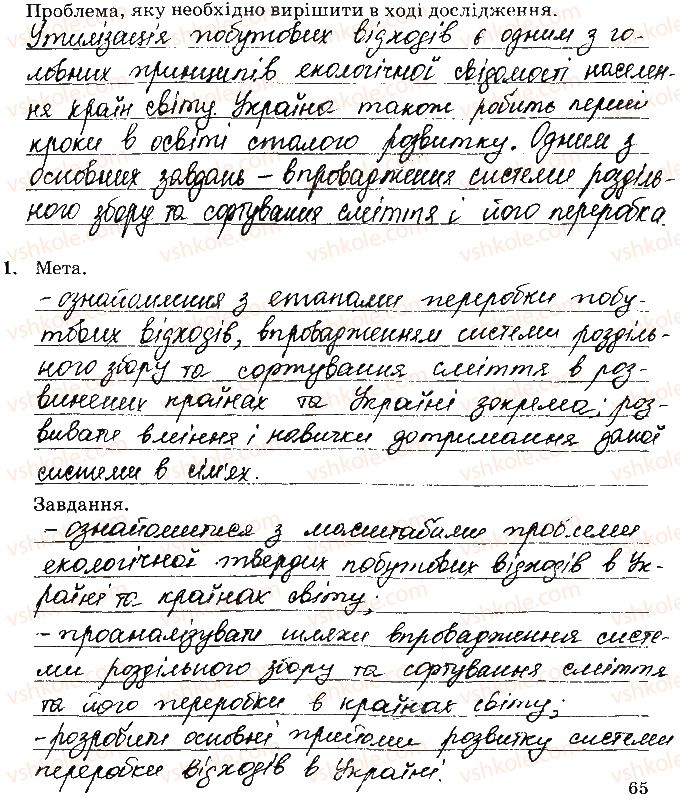 Проблема, яку необхідно вирішити в ході дослідження.
Утилізація побутових відходів є одним з го-
ловних принципів екологічної свідомості населен-
ня країн світу. Україна також робить перші
кроки в освіті сталого розвитку. Одним з
основних завдань – впровадження системи розділь-
ного збору та сортування сміття і його переробка.
1. Мета.
- ознайомлення з етапами переробки побу-
тових відходів, впровадженням системи розділь-
ного збору та сортування сміття в роз-
винених країнах та Україні зокрема; роз-
вивати вміння і навички дотримання даної
системи в сім'ях.
Завдання.
- ознайомитися з масштабами проблеми
екологічної твердих побутових відходів в Ук-
раїні та країнах світу;
- проаналізувати шляхи впровадження систе-
ми роздільного збору та сортування сміття
та його переробки в країнах світу;
- розробити основні прийоми розвитку системи
переробки відходів в Україні.
65